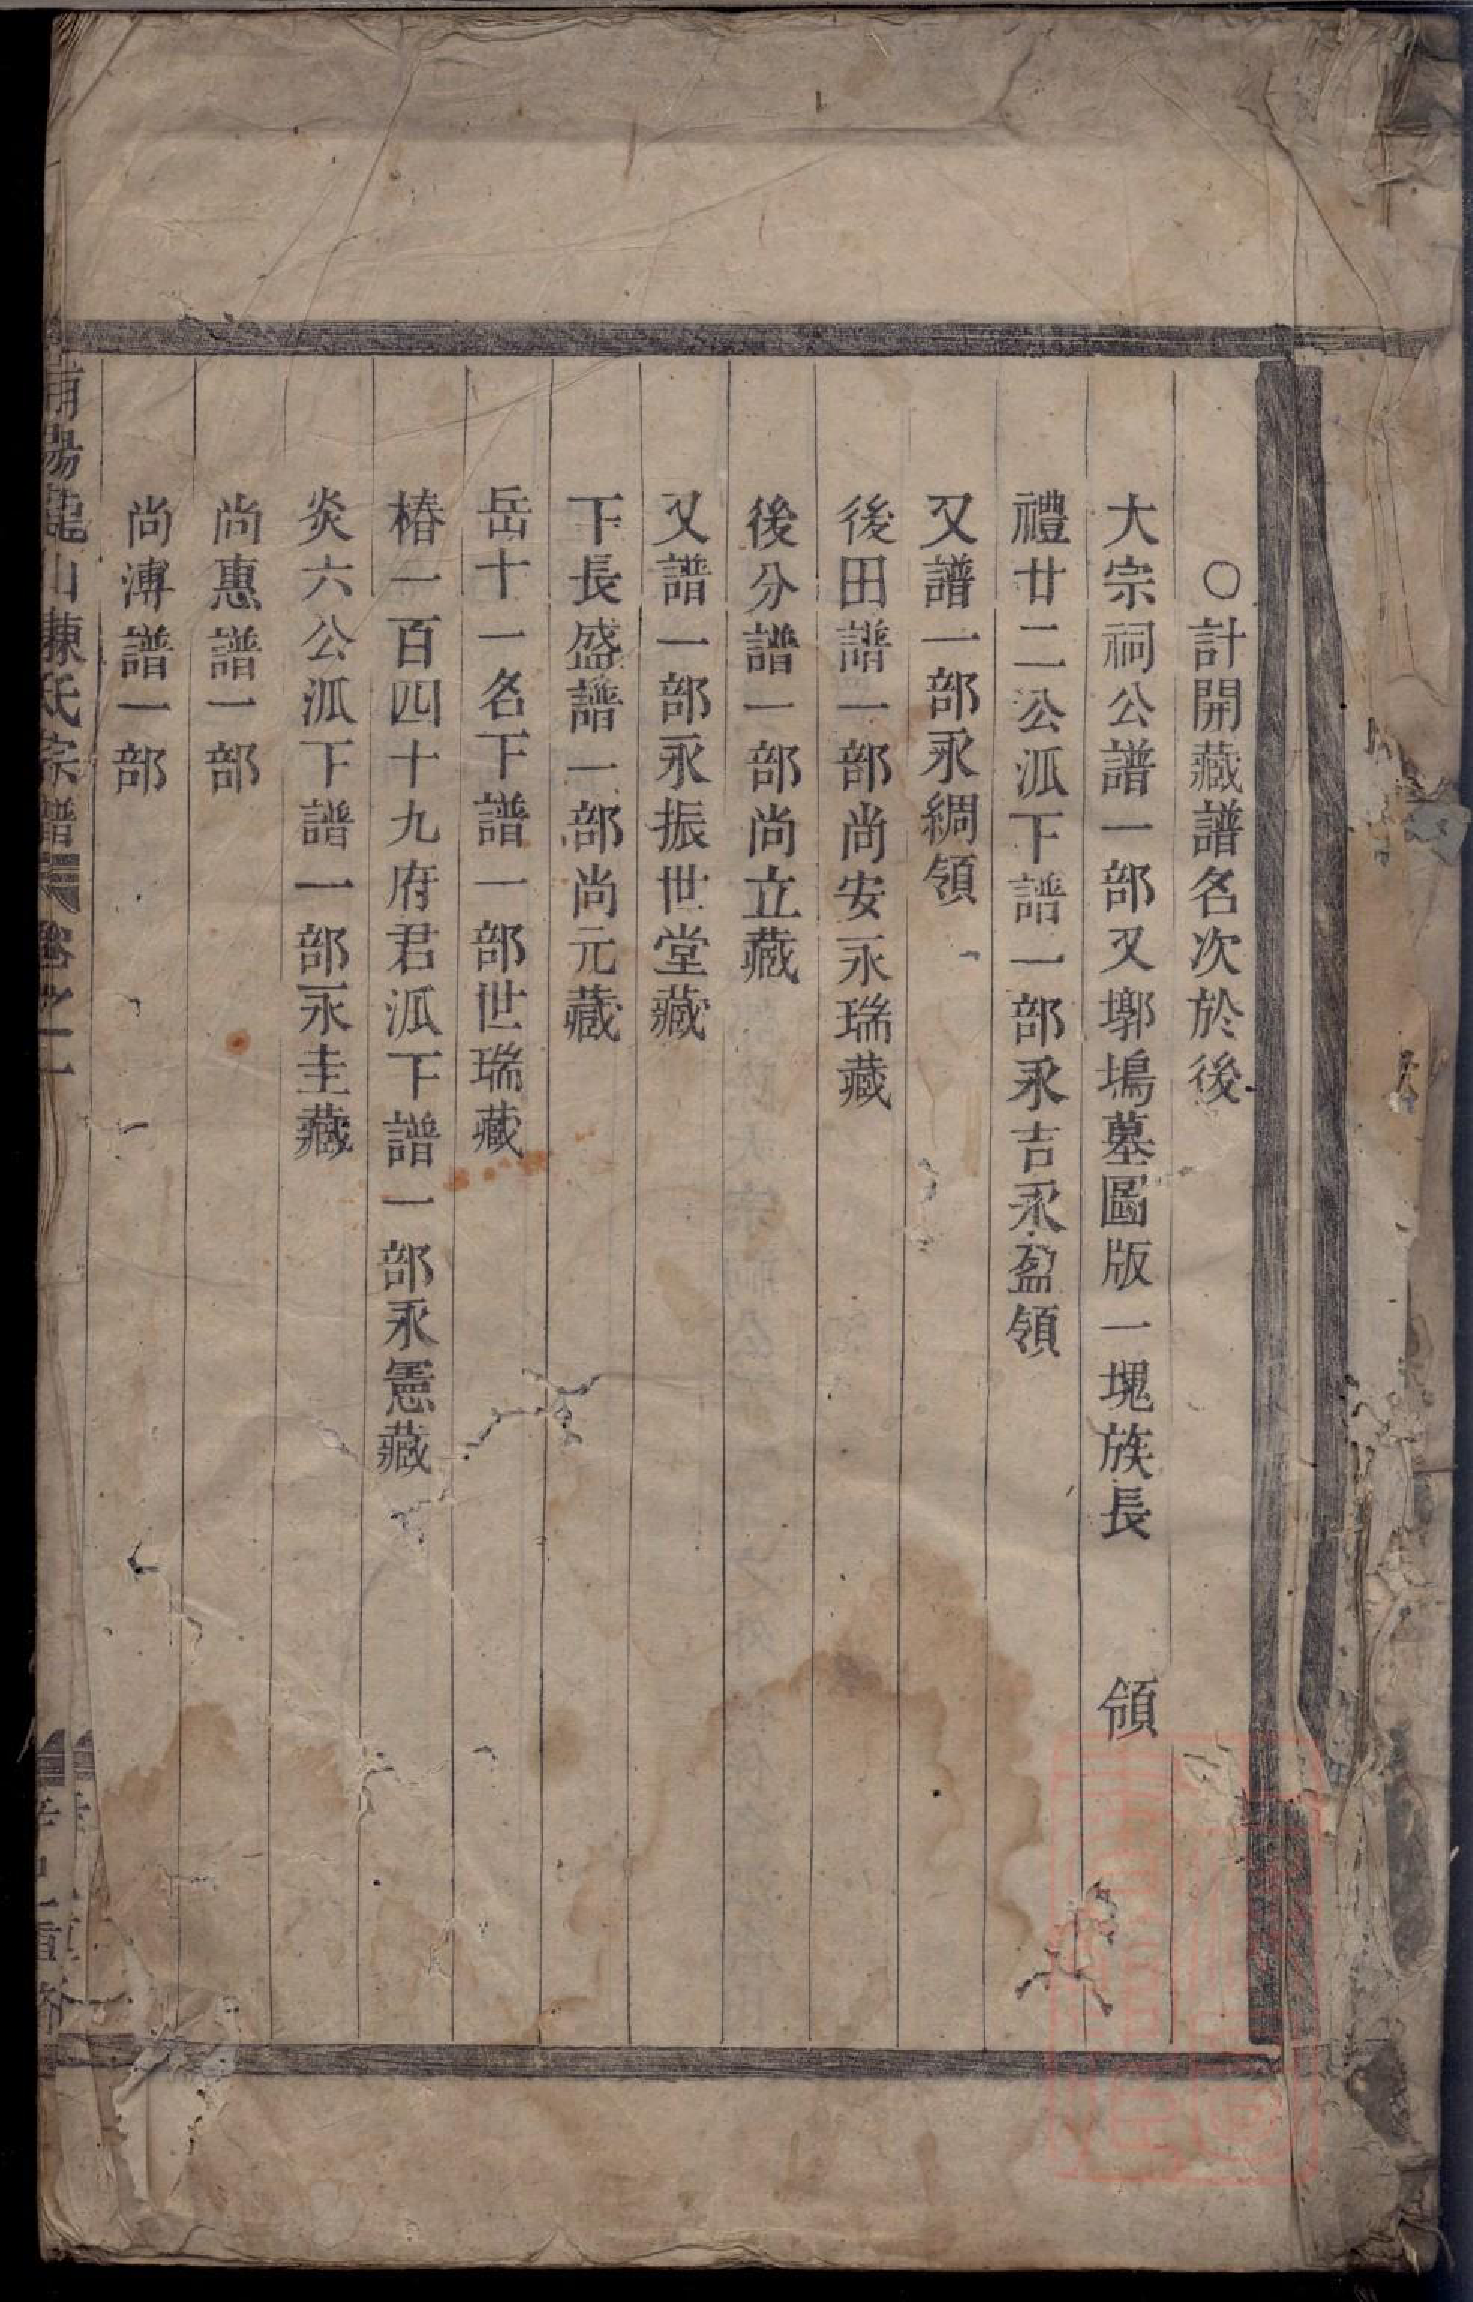 ○計開藏譜名次於後
大宗祠公譜一部又墎塢墓圖版一塊族長　領
禮廿二公派下譜一部永吉永盈領
又譜一部永綢領
後田譜一部尚安永瑞藏
後分譜一部尚立藏
又譜一部永振世堂藏
下長盛譜一部尚元藏
岳十一名下譜一部世瑞藏
椿一百四十九府君派下譜一部永憲藏
炎六公派下譜一部永圭藏
尚惠譜一部
尚溥譜一部
陽龍山陳氏宗譜 卷之一